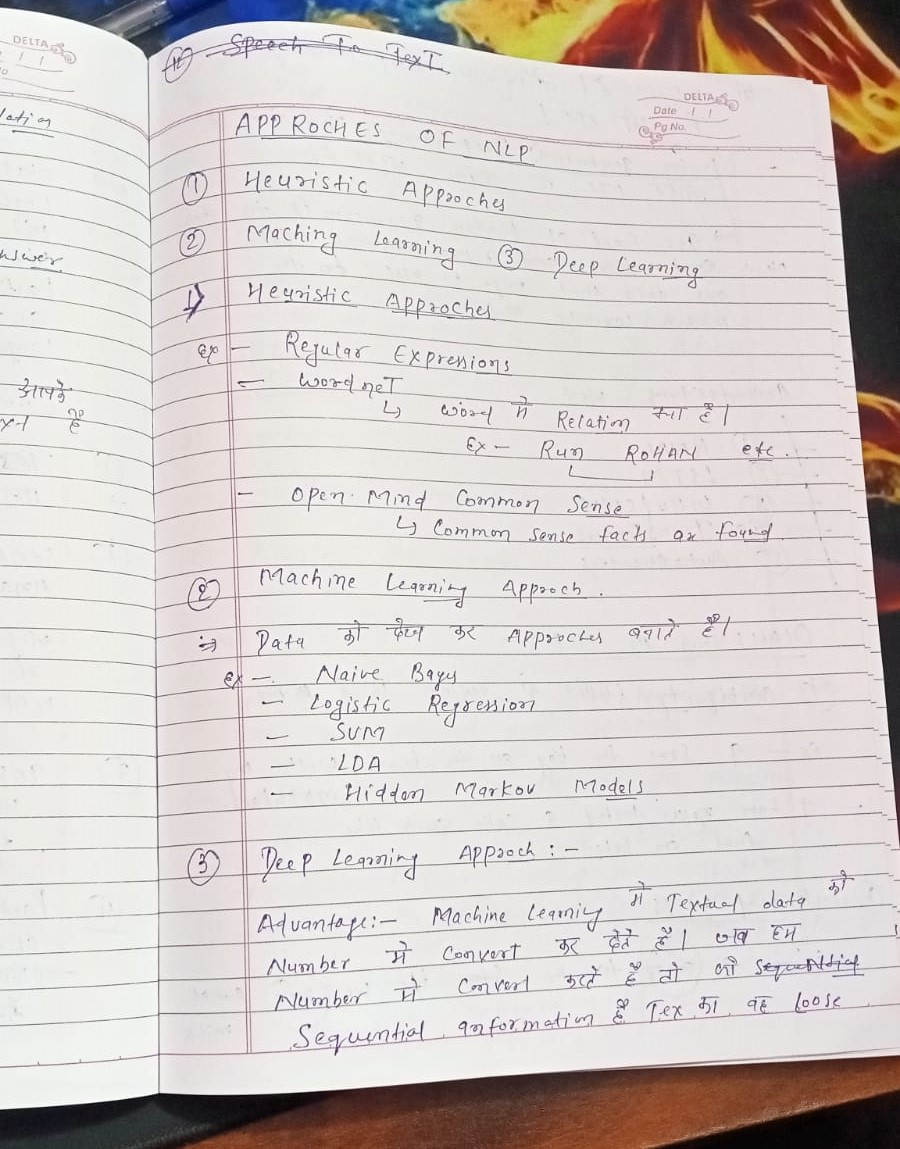 DELTA
lation
nswer
आपके
ext है
(12) Speech To Text
DELTA
Date / /
Pg No.
APPROCHES OF NLP
① Heuristic Approches
② Maching Learning ③ Deep Learning
1) Heuristic Approches
Ex - Regular Expressions
- WordneT
↳ word में Relation क्या है।
Ex - Run ROHAN etc.
- Open Mind Common Sense
↳ Common sense facts are found
② Machine Learning Approch.
⇒ Data को देख कर Approches बनाते हैं।
Ex - Naive Bayes
- Logistic Regression
- SVM
- LDA
- Hidden Markov Models
③ Deep Learning Approch :-
Advantage:- Machine Learning में Textual data को
Number में Convert कर देते हैं। जब हम
Number में Convert करते हैं तो जो Sequential
Sequential information है Tex का वह loose